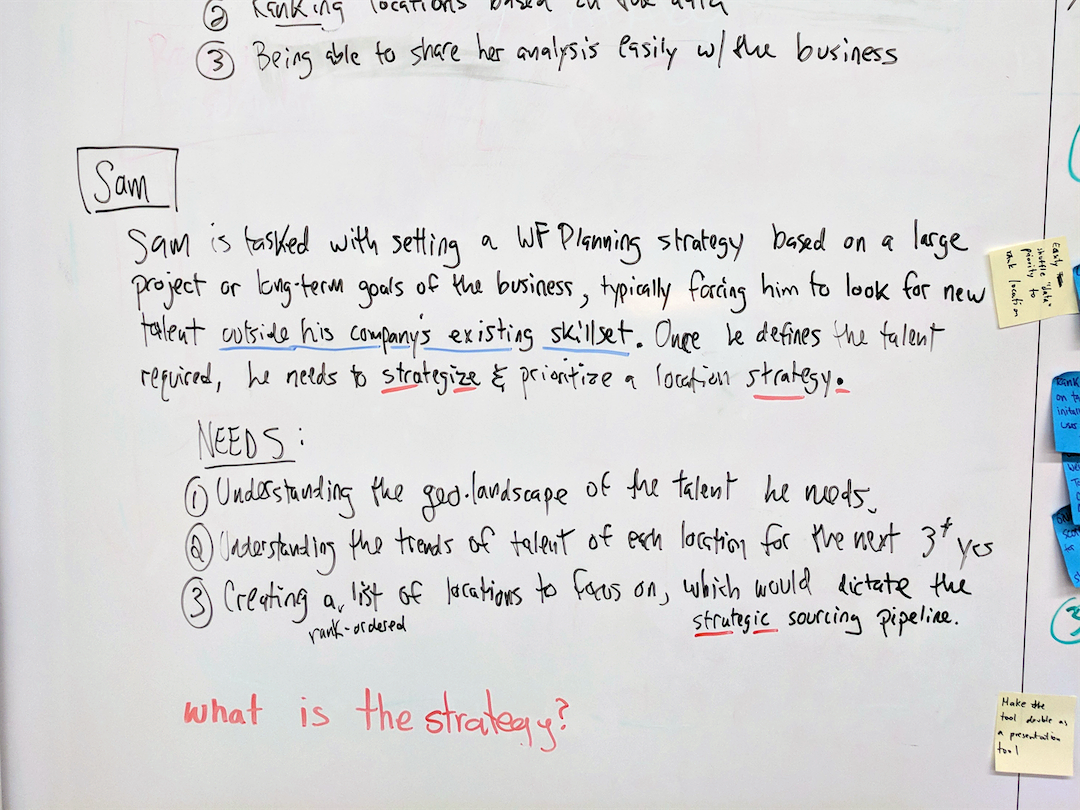 ② Ranking locations based on
③ Being able to share her analysis easily w/ the business
Sam
Sam is tasked with setting a WF Planning strategy based on a large
project or long-term goals of the business, typically forcing him to look for new
talent outside his company's existing skillset. Once he defines the talent
required, he needs to strategize & prioritize a location strategy.
NEEDS:
① Understanding the geo.landscape of the talent he needs.
② Understanding the trends of talent of each location for the next 3+ yrs
③ Creating a list of locations to focus on, which would dictate the
rank-ordered
strategic sourcing pipeline.
what is the strategy?
Easily
shuffle "data"
priority to
rank location
on
user
③
Make the
tool double as
a presentation
tool